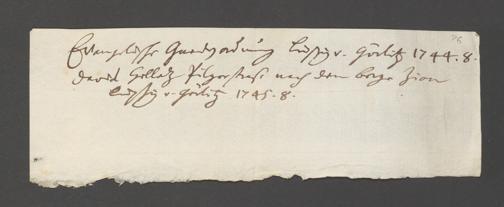 Evangelische Gnadenordnung Leipzig u. Görlitz 1744. 8.
David Hollatz Pilgerstraß nach dem berge Zion
Leipzig u. Görlitz 1745. 8.
76